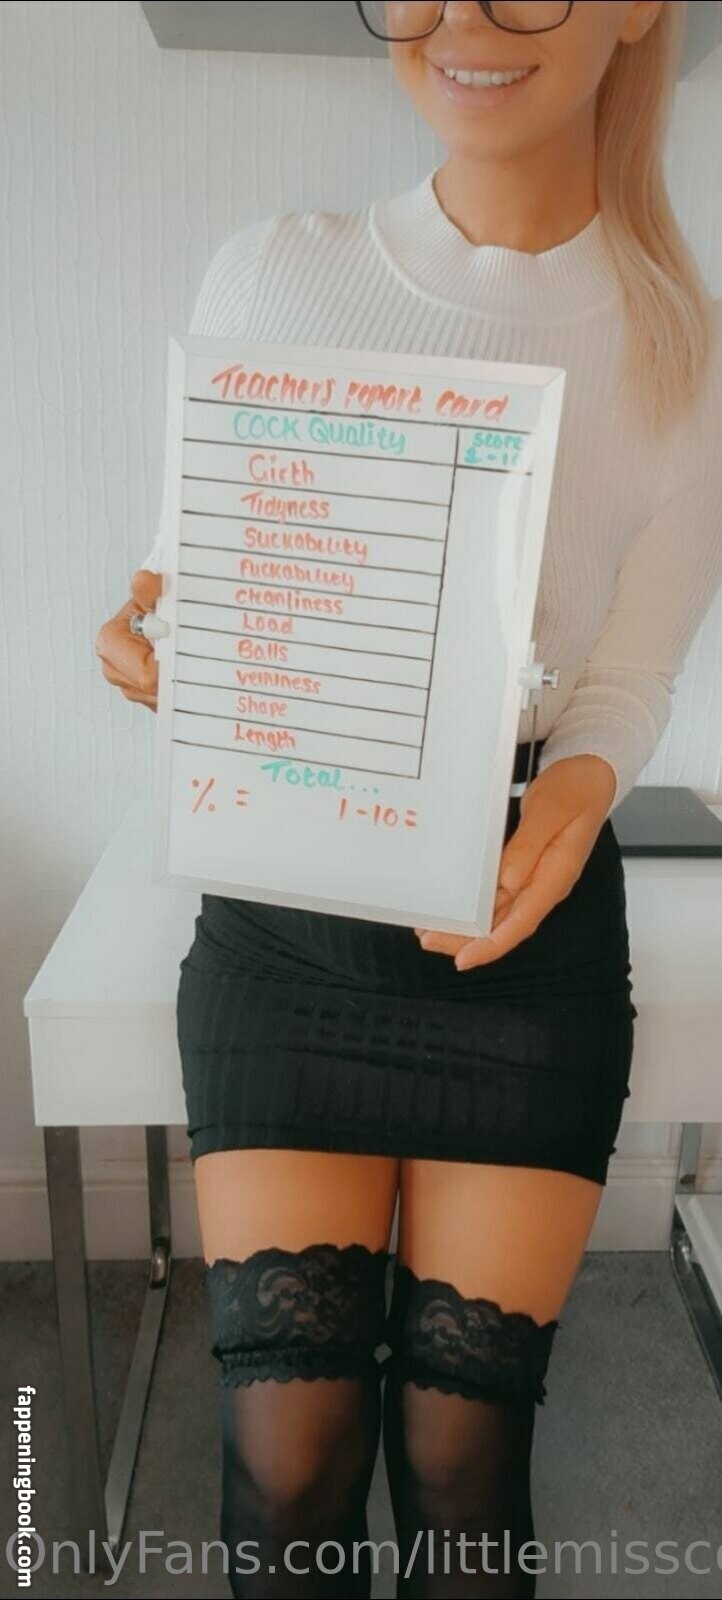 Teachers report card
COCK Quality
Score
1-10
Girth
Tidyness
Suckability
Fuckability
cleanliness
Load
Balls
veininess
Shape
Length
Total...
% =
1-10=
fappeningbook.com
OnlyFans.com/littlemissc